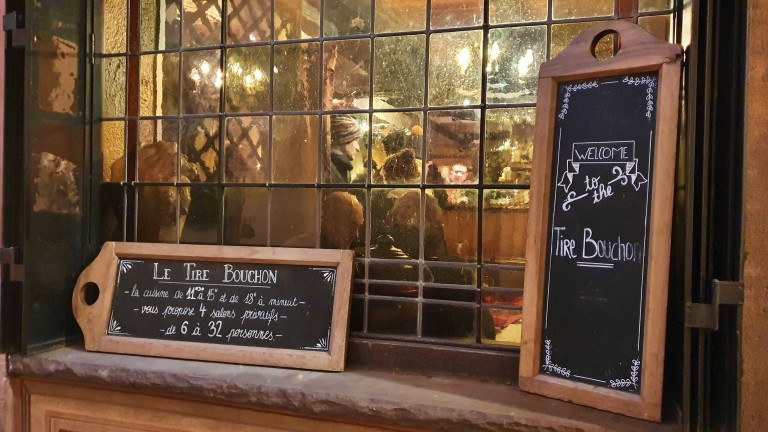 LE TIRE BOUCHON
- la cuisine de 11H30 à 15H et de 18H à minuit -
- vous propose 4 salons privatifs -
- de 6 à 32 personnes -
WELCOME
to
the
Tire Bouchon